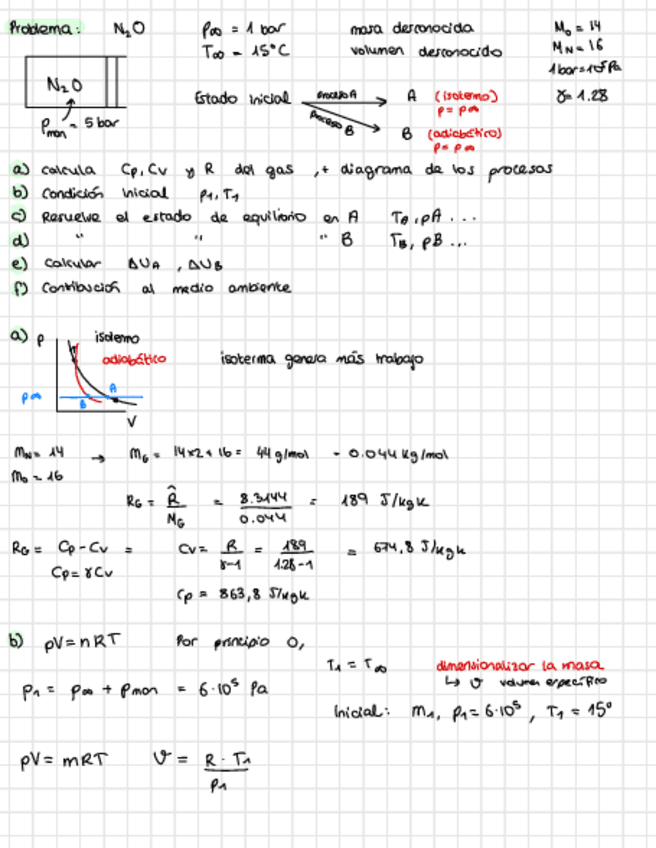 Problema: N₂O p∞ = 1 bar masa desconocida M₀ = 14
T∞ = 15°C volumen desconocido M_N = 16
1bar=10⁵Pa
N₂O Estado inicial proceso A A (isotermo) γ= 1.28
p = p∞
Pman = 5 bar proceso B B (adiabático)
p = p∞
a) calcula Cp, Cv y R del gas , + diagrama de los procesos
b) Condición inicial p₁, T₁
c) Resuelve el estado de equilibrio en A T_A, pA ...
d) " " " B T_B, pB ...
e) Calcular ΔU_A , ΔU_B
f) Contribución al medio ambiente
a) P isotermo
adiabático isoterma genera más trabajo
p∞ B A
V
m_N = 14 → M_G = 14x2 + 16 = 44 g/mol - 0.044 kg/mol
m₀ = 16
R_G = R̂ / M_G = 8.3144 / 0.044 = 189 J/kgK
R_G = Cp - Cv = Cv = R / γ-1 = 189 / 1.28-1 = 674,8 J/kgk
Cp = γCv
Cp = 863,8 J/kgk
b) pV = nRT Por principio 0,
T₁ = T∞ dimensionalizar la masa
↳ v volumen específico
p₁ = p∞ + pman = 6·10⁵ Pa
Inicial: m₁, p₁ = 6·10⁵ , T₁ = 15°
pV = mRT v = R · T₁ / p₁